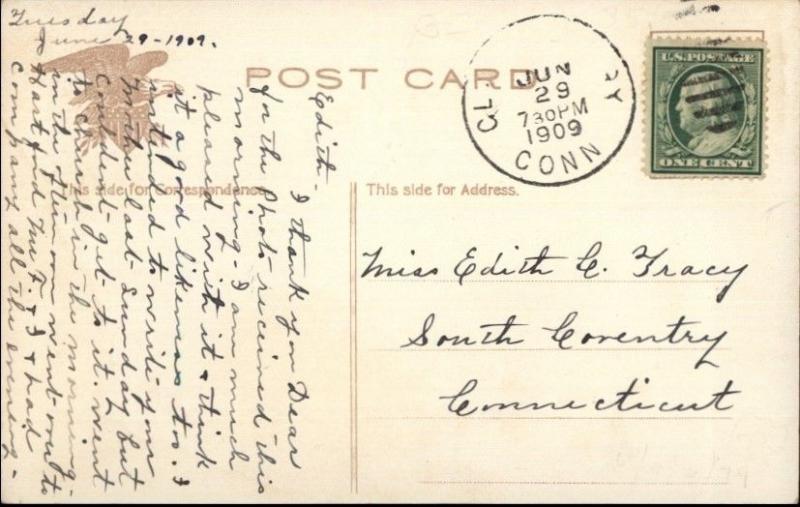 Tuesday
June 29-1909.
POST CARD
JUN
29
730PM
1909
CONN
U.S. POSTAGE
ONE CENT
This side for Correspondence
This side for Address.
Edith -
I thank you Dear
for the Photo received this
morning - I am much
pleased with it & think
it a good likeness too. I
intended to write your
Mother last Sunday but
Couldent get to it. went
to church in the morning -
in the afternoon went over to
Hartford & I & had
company all the evening -
Miss Edith C. Tracy
South Coventry
Connecticut